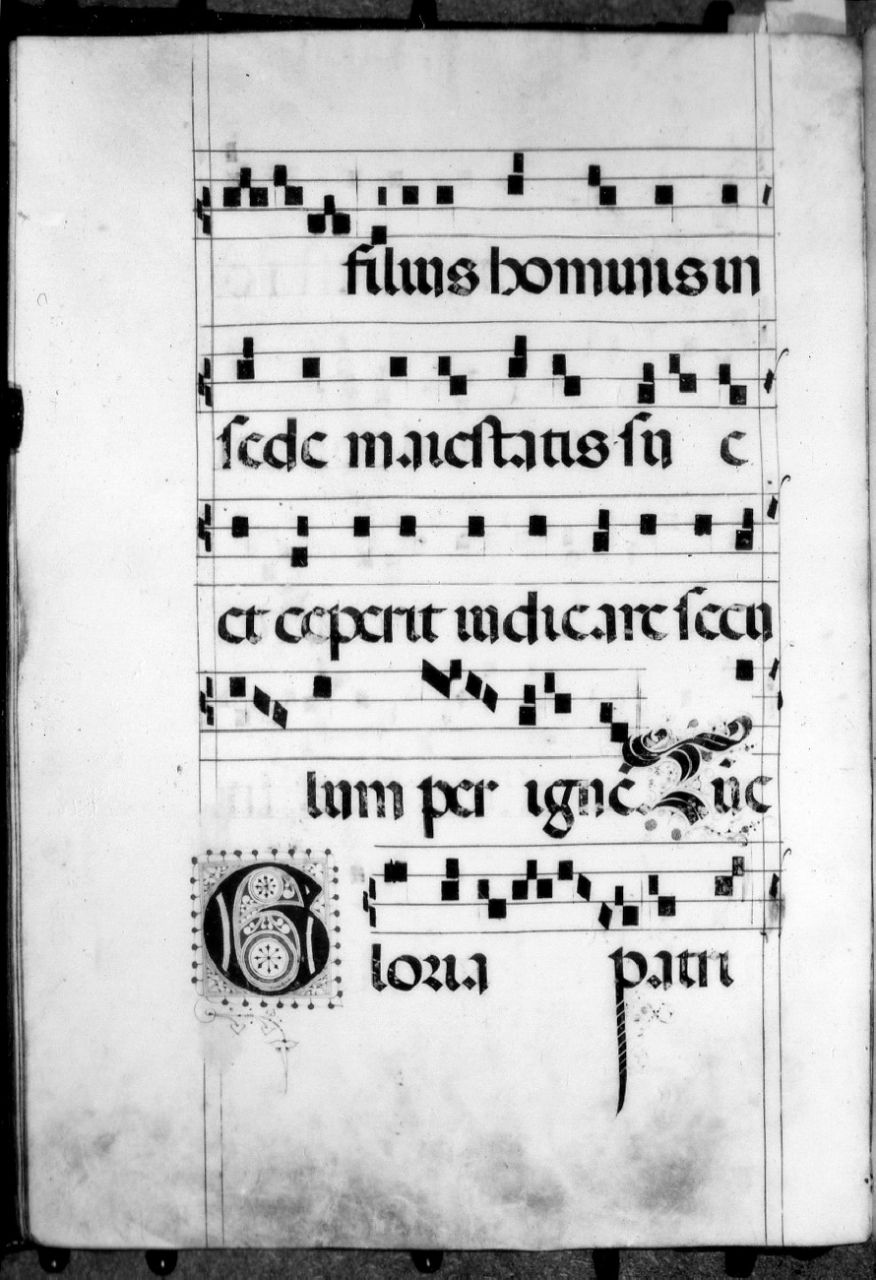 filius hominis in
sede maiestatis su e
et ceperit iudicare secu
lum per ignē. Tūc
Gloria patri